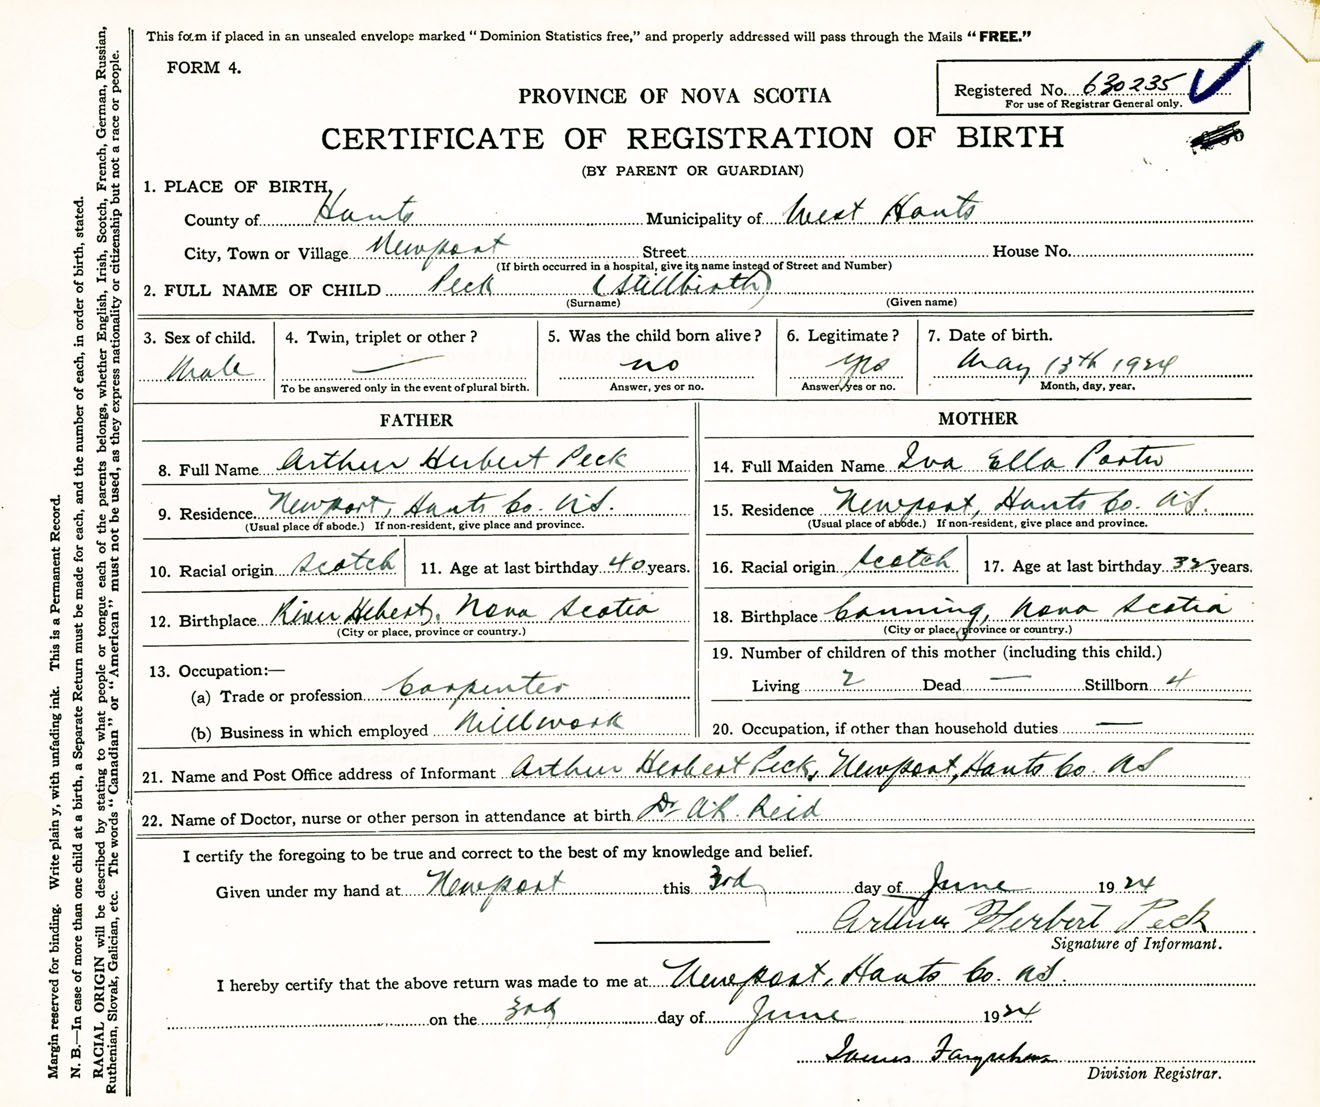 This form if placed in an unsealed envelope marked “Dominion Statistics free,” and properly addressed will pass through the Mails “FREE.”
FORM 4.
Registered No. 630235
For use of Registrar General only.
PROVINCE OF NOVA SCOTIA
CERTIFICATE OF REGISTRATION OF BIRTH
(BY PARENT OR GUARDIAN)
1. PLACE OF BIRTH,
County of Hants Municipality of West Hants
City, Town or Village Newport Street House No.
(If birth occurred in a hospital, give its name instead of Street and Number)
2. FULL NAME OF CHILD Peck (Stillbirth)
(Surname) (Given name)
3. Sex of child. 4. Twin, triplet or other? 5. Was the child born alive? 6. Legitimate? 7. Date of birth.
Male — no yes May 13th 1924
To be answered only in the event of plural birth. Answer, yes or no. Answer, yes or no. Month, day, year.
FATHER
8. Full Name Arthur Herbert Peck
9. Residence Newport, Hants Co. N.S.
(Usual place of abode.) If non-resident, give place and province.
10. Racial origin Scotch 11. Age at last birthday 40 years.
12. Birthplace River Hebert, Nova Scotia
(City or place, province or country.)
13. Occupation:—
(a) Trade or profession Carpenter
(b) Business in which employed Millwork
MOTHER
14. Full Maiden Name Iva Ella Porter
15. Residence Newport, Hants Co. N.S.
(Usual place of abode.) If non-resident, give place and province.
16. Racial origin Scotch 17. Age at last birthday 32 years.
18. Birthplace Canning, Nova Scotia
(City or place, province or country.)
19. Number of children of this mother (including this child.)
Living 2 Dead — Stillborn 4
20. Occupation, if other than household duties —
21. Name and Post Office address of Informant Arthur Herbert Peck, Newport, Hants Co. NS
22. Name of Doctor, nurse or other person in attendance at birth Dr A.R. Reid
I certify the foregoing to be true and correct to the best of my knowledge and belief.
Given under my hand at Newport this 3rd day of June 1924
Arthur Herbert Peck
Signature of Informant.
I hereby certify that the above return was made to me at Newport, Hants Co. N.S.
on the 3rd day of June 1924
James
Division Registrar.
Margin reserved for binding. Write plain y, with unfading ink. This is a Permanent Record.
N. B.—In case of more than one child at a birth, a Separate Return must be made for each, and the number of each, in order of birth, stated.
RACIAL ORIGIN will be described by stating to what people or tongue each of the parents belongs, whether English, Irish, Scotch, French, German, Russian,
Ruthenian, Slovak, Galician, etc. The words “Canadian” or “American” must not be used, as they express nationality or citizenship but not a race or people.